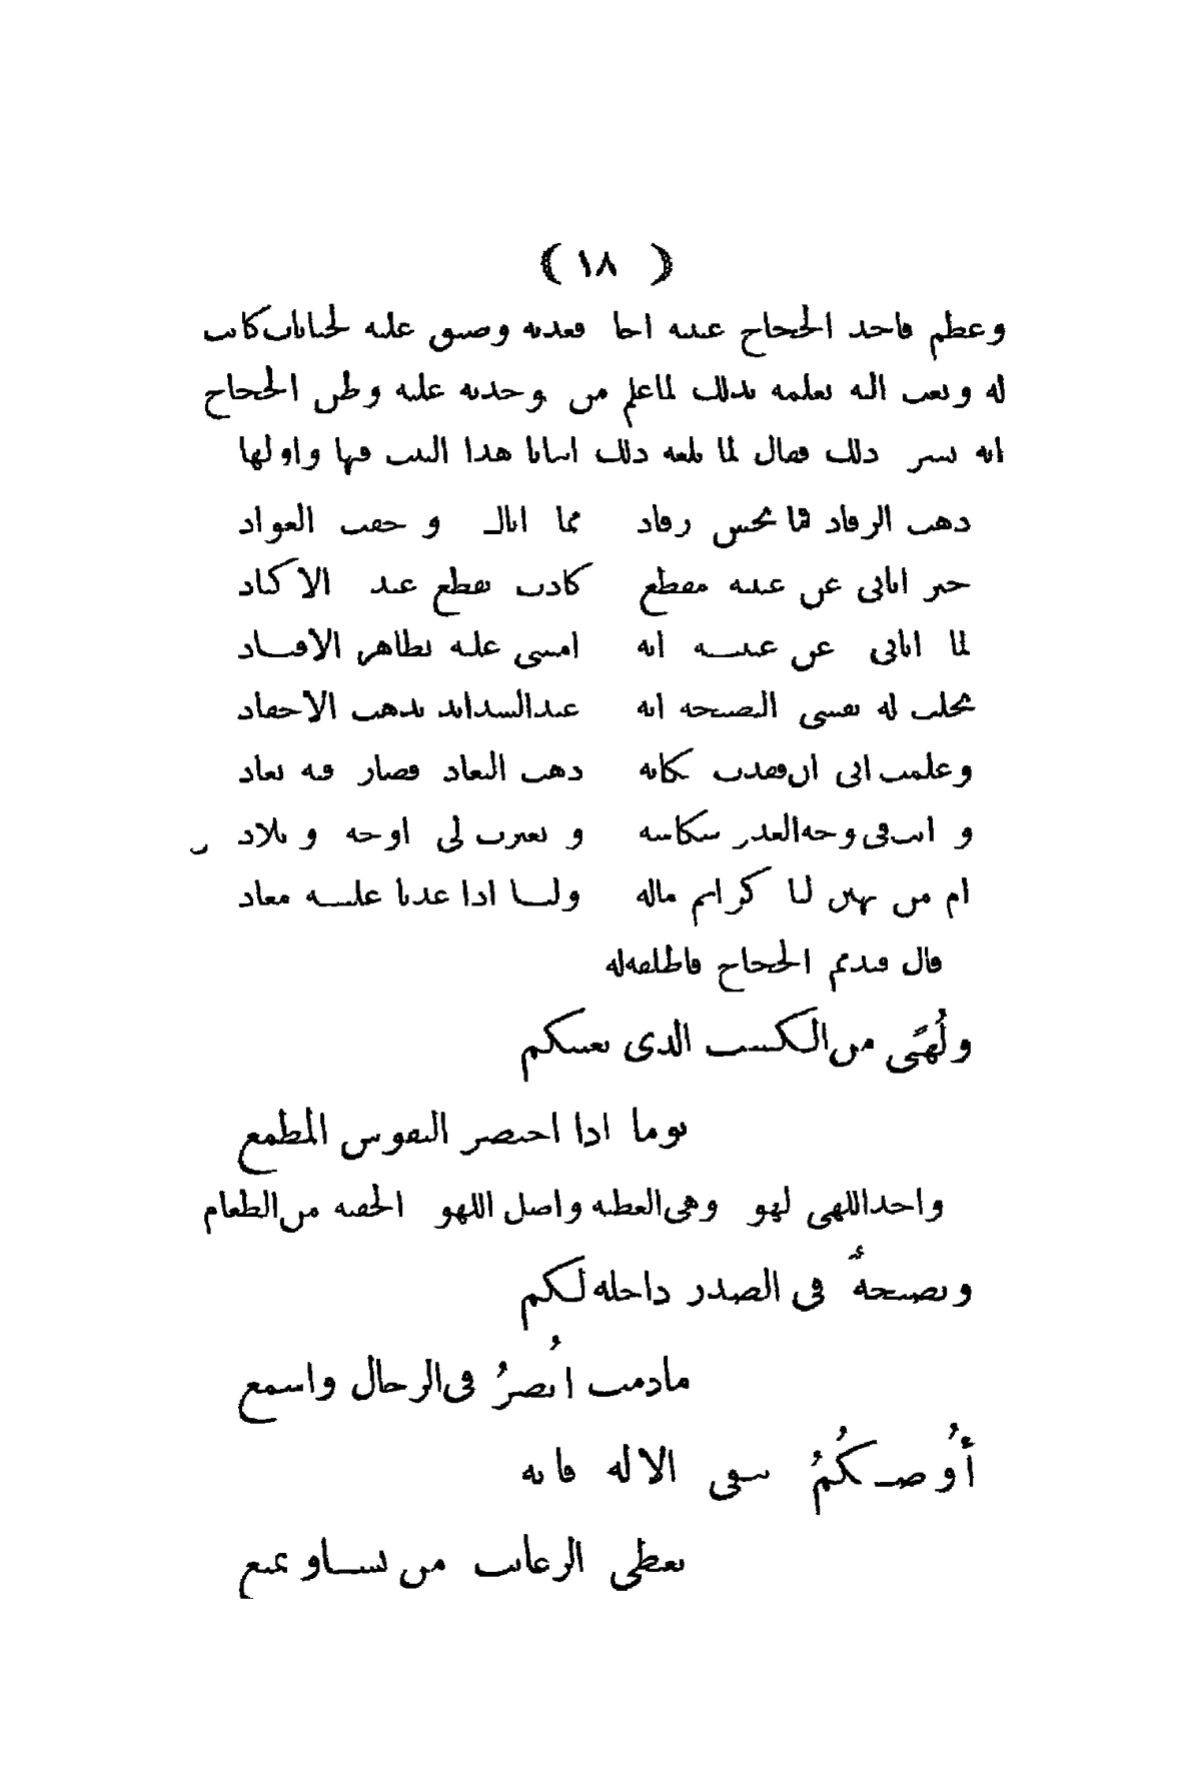 ( ١٨ )
وعظم فاخذ الحجاج عيينة اخا فعذبه وضيق عليه لجنايات كانت
له وبعث اليه يعلمه بذلك لما علم من وجدته عليه وظن الحجاج
انه يسر ذلك فقال لما بلغه ذلك ابياتا هذا البيت فيها واولها
ذهب الرقاد فما يحس رقاد مما اتاك وحفت العواد
خبر اتانى عن عيينة مفظع كادت تقطع عند الاكباد
لما اتانى عن عيينة انه امسى عليه تظاهر الاقياد
نخلت له نفسى النصيحة انه عند الشدائد تذهب الاحقاد
وعلمت انى ان فقدت مكانه ذهب البعاد فصار فيه بعاد
ورايت فى وجه العدو شكاسة وتغيرت لى اوجه وبلاد
ام من يهين لنا كرائم ماله ولنا اذا عدنا عليه معاد
قال فقدم الحجاج فاطلقه له
ولُهًى من الكسب الذى يغنيكم
يوما اذا احتضر النفوس المطمع
واحد اللهى لهوة وهى العطية واصل اللهوة الحفنة من الطعام
ونصيحةٌ فى الصدر داخلة لكم
ما دمت ابُصرُ فى الرجال واسمع
أُوصيكُمُ بتقى الاله فانه
يعطى الرغائب من يشاء ويمنع